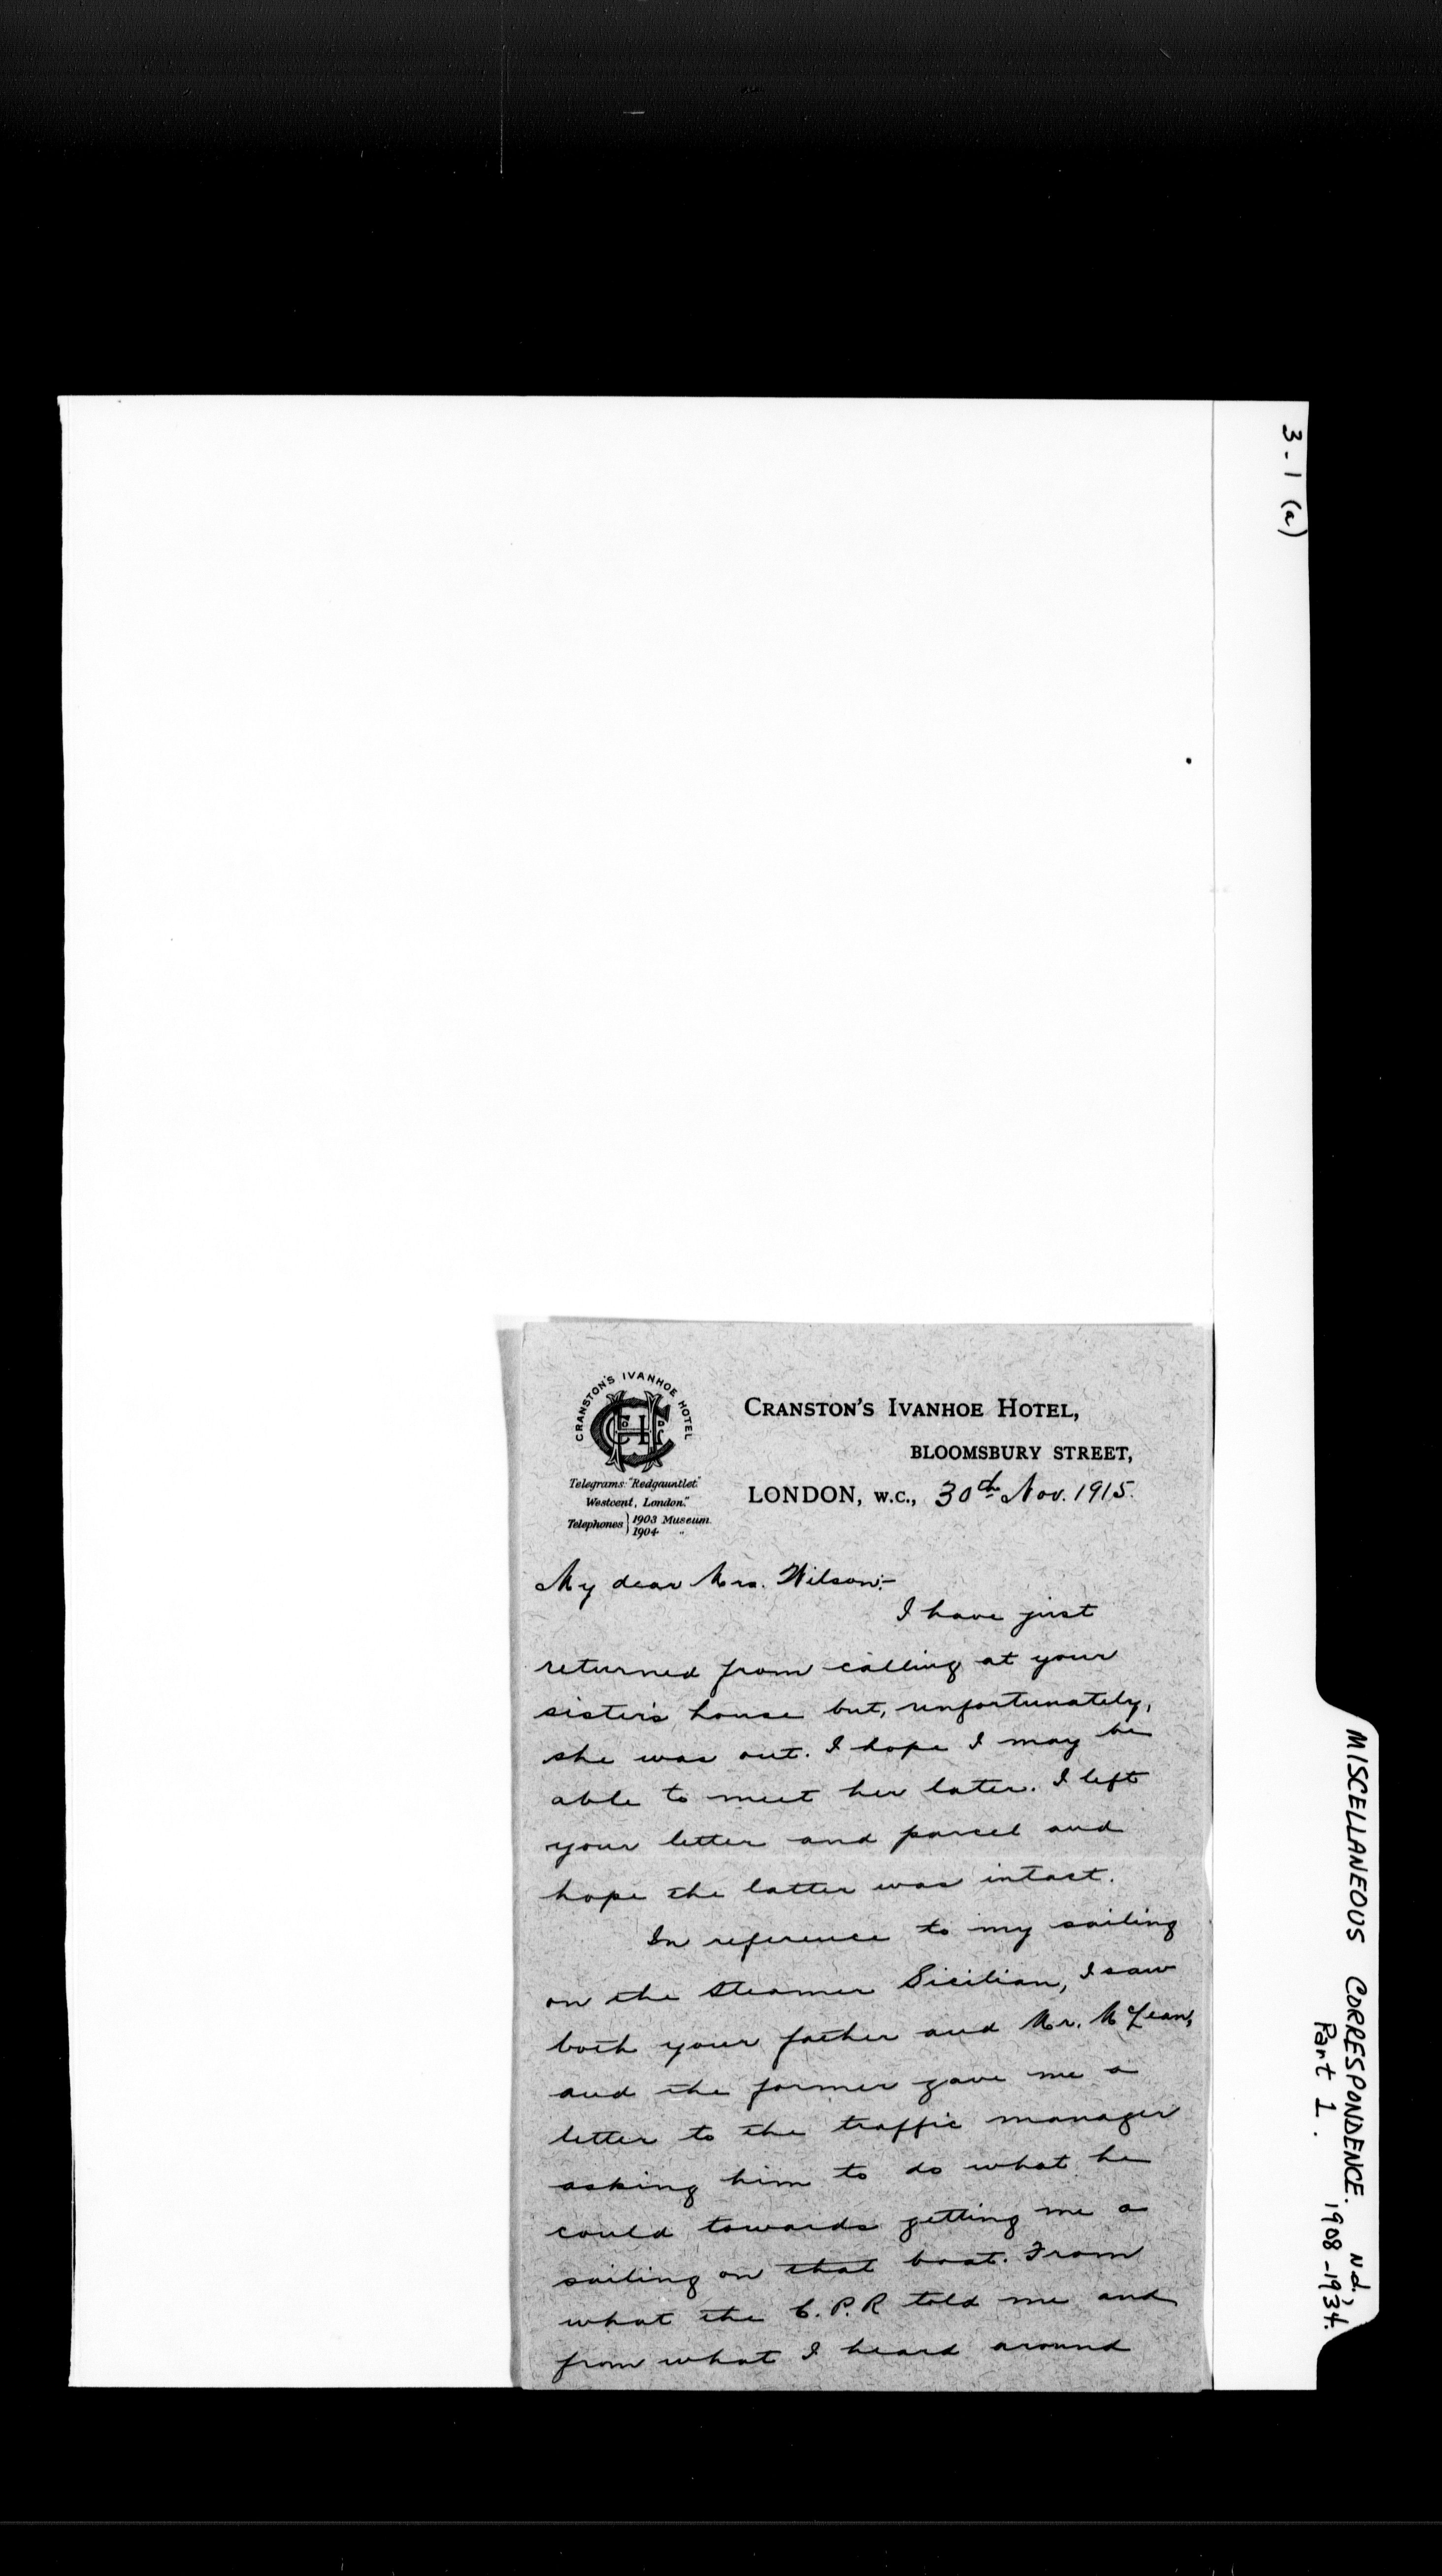 3-1 (a)
MISCELLANEOUS CORRESPONDENCE. N.d.,
Part 1. 1908-1934.
CRANSTON'S IVANHOE HOTEL
CRANSTON'S IVANHOE HOTEL,
BLOOMSBURY STREET,
LONDON, W.C., 30th Nov. 1915.
Telegrams: "Redgauntlet."
Westcent, London."
Telephones } 1903 Museum.
1904 "
My dear Mrs. Wilson:-
I have just
returned from calling at your
sister's house but, unfortunately,
she was out. I hope I may be
able to meet her later. I left
your letter and parcel and
hope the latter was intact.
In reference to my sailing
on the Steamer Sicilian, I saw
both your father and Mr. McLean,
and the former gave me a
letter to the traffic manager
asking him to do what he
could towards getting me a
sailing on that boat. From
what the C.P.R told me and
from what I heard around